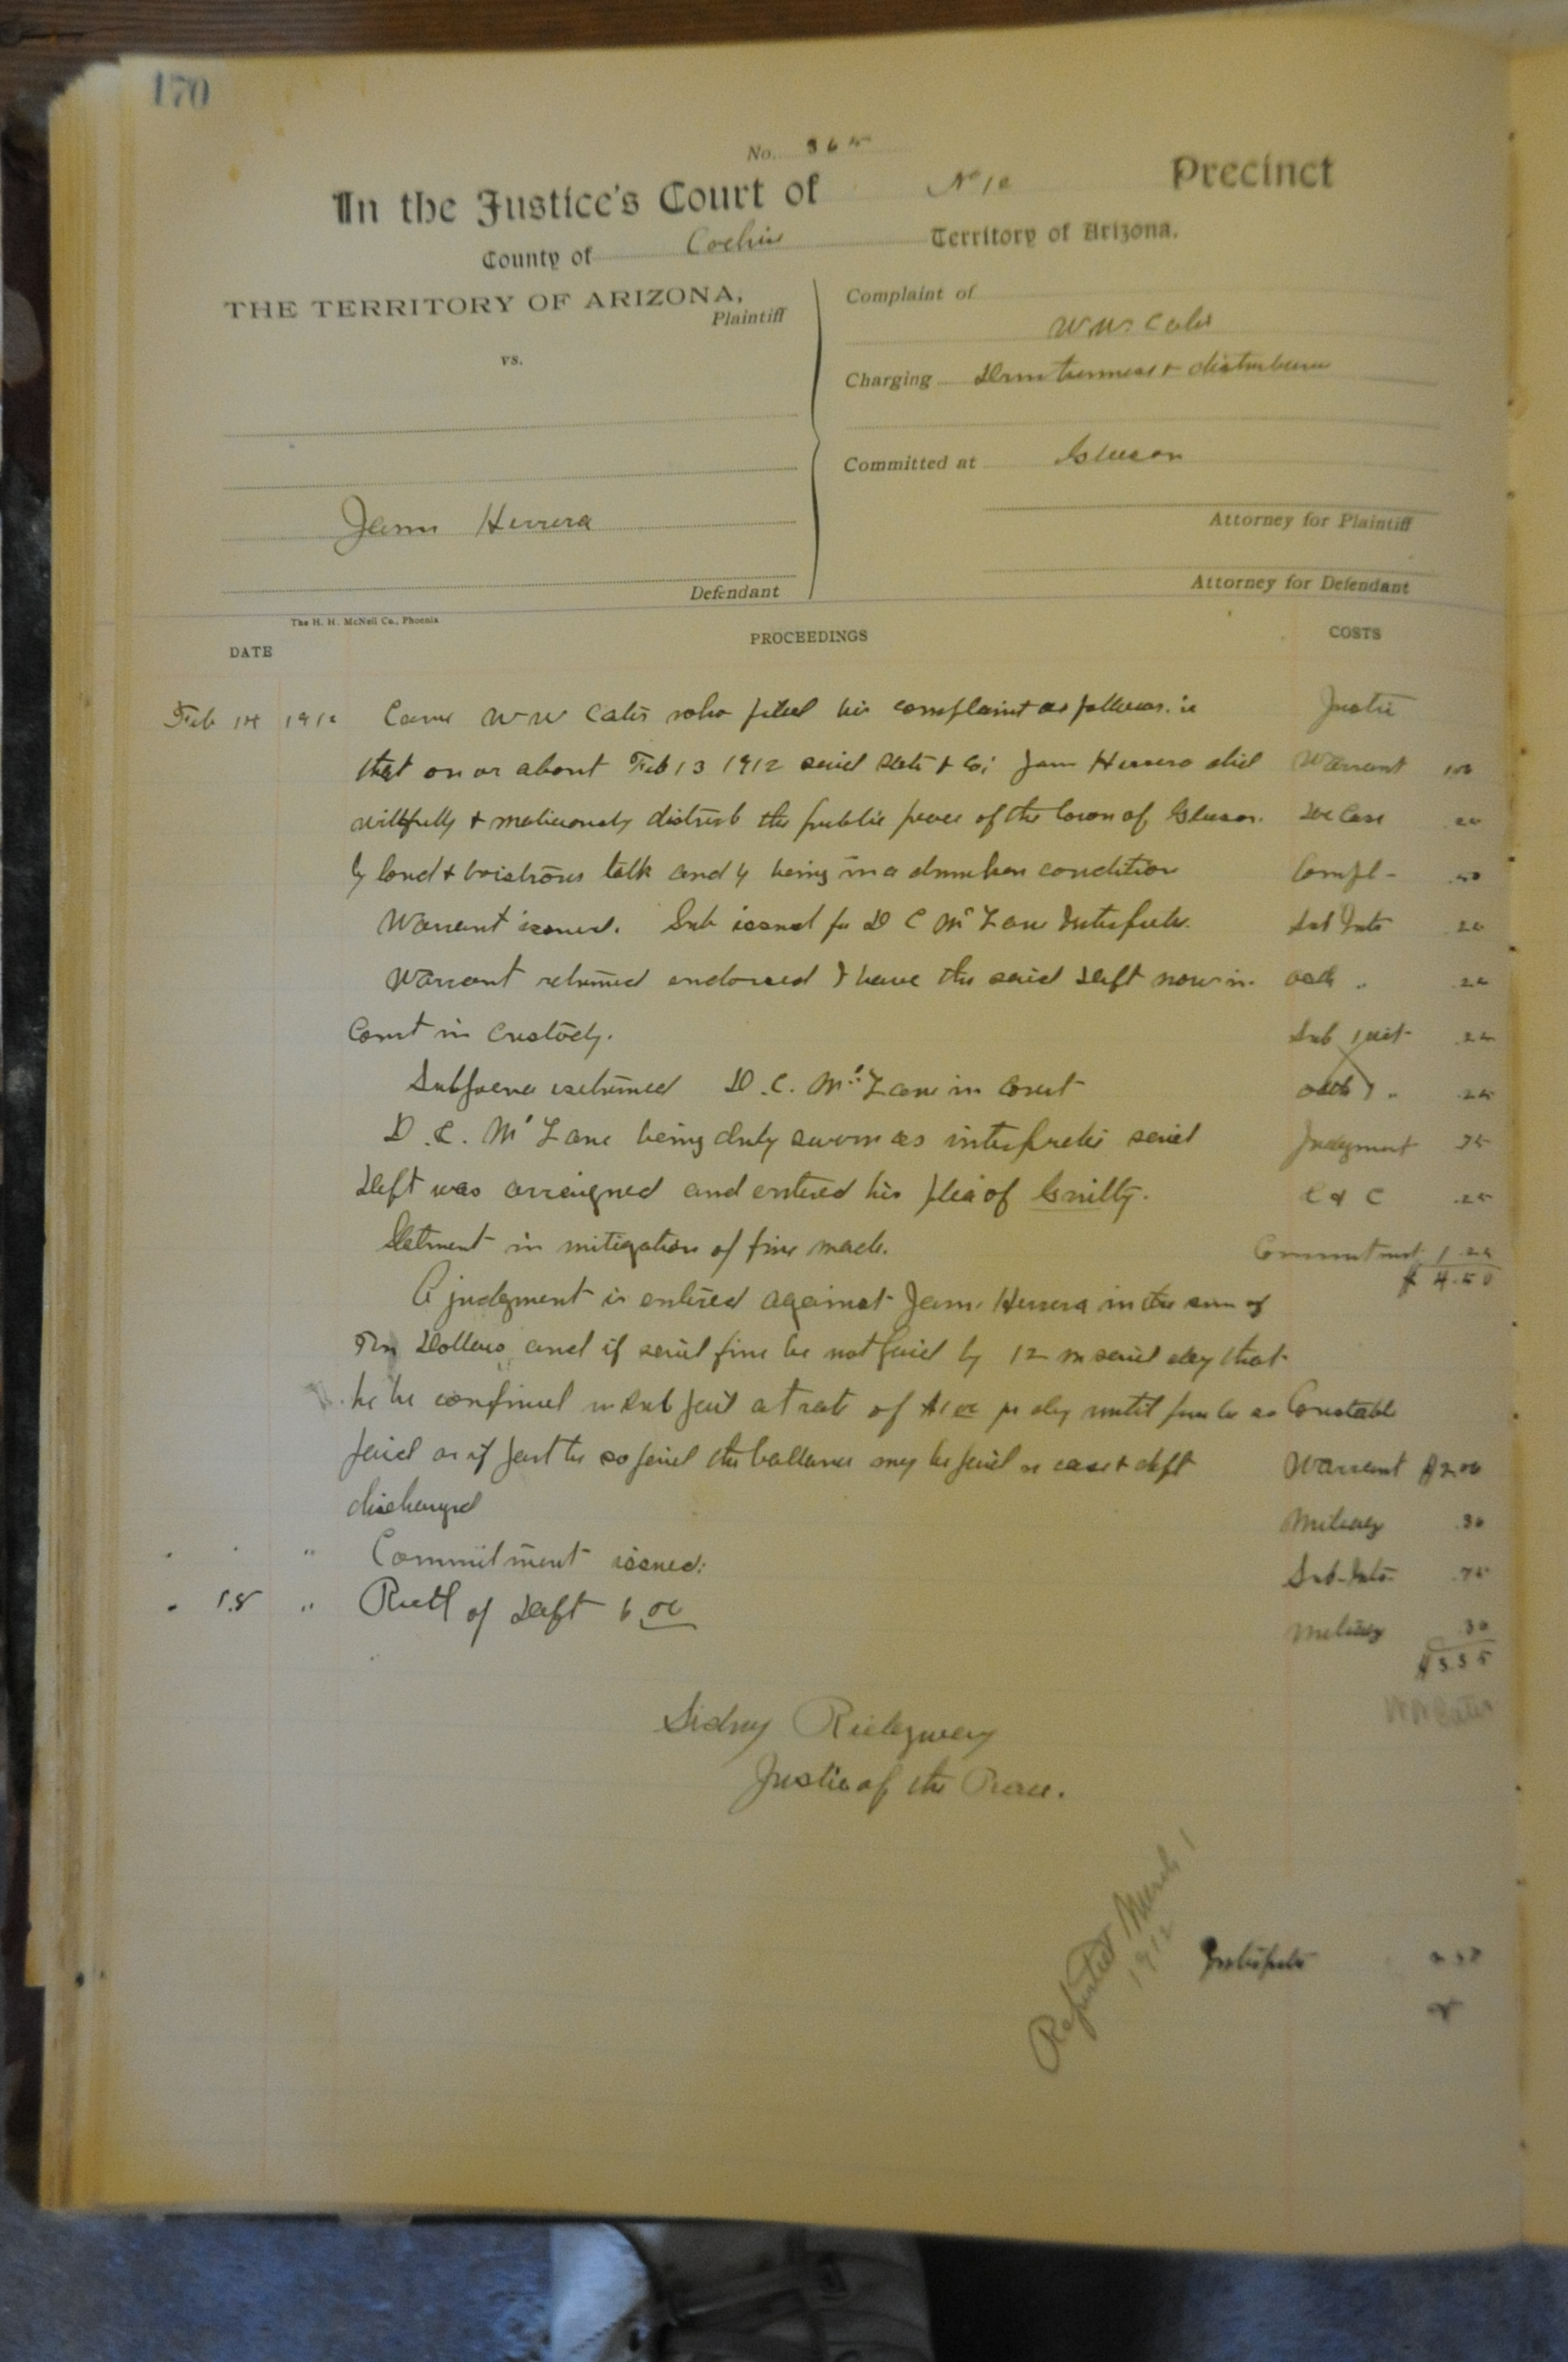 170
No. 365
In the Justice's Court of No 10 Precinct
County of Cochise Territory of Arizona.
THE TERRITORY OF ARIZONA,
Plaintiff
vs.
Herrera
Defendant
Complaint of
W W Cates
Charging Drunkenness & disturbance
Committed at Gleeson
Attorney for Plaintiff
Attorney for Defendant
The H. H. McNeil Co., Phoenix
DATE
PROCEEDINGS
COSTS
Feb 14 1912 Came W W Cates who filed his complaint as follows. ie
that on or about Feb 13 1912 said State & Co; Herrera did
willfully & maliciously disturb the public peace of the town of Gleeson.
by loud & boistrous talk and by being in a drunken condition
Warrant issued. Sub issued for D C McLane Interpreter.
Warrant returned endorsed I have the said Deft now in
Court in custody.
Subpoena returned D. C. McLane in Court
D. C. McLane being duly sworn as interpreter said
Deft was arraigned and entered his plea of Guilty.
Statment in mitigation of fine made.
A judgment is entered against Herrera in the sum of
Ten Dollars and if said fine be not paid by 12 m said day that
he be confined in Sub jail at rate of $1 00 pr day until fine be so
paid or if part be so paid the ballance may be paid in case & deft
discharged
" Commitment issued:
" 15 " Recd of Deft 6 00
Sidney Ridgway
Justice of the Peace.
Justice
Warrant 1 00
Compl - .50
Sub Inte .25
Oath " .25
Sub .25
Oath " .25
Judgment 75
.25
Commitment 1.25
$ 4.50
Constable
Warrant $2.00
Mileage .30
Sub-Inte .75
Mileage .30
$3.35
W W Cates
Reported March 1
1912
Interpreter